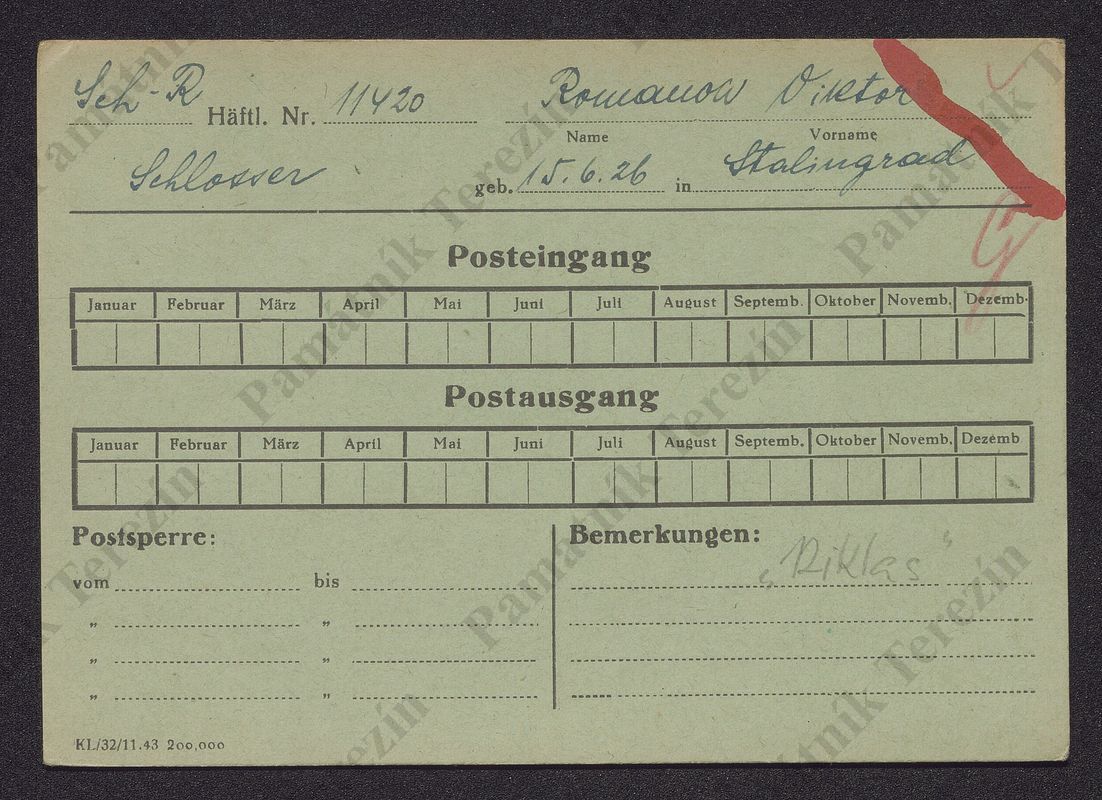 Sch-R Häftl. Nr. 11420 Romanow Viktor
Name Vorname
Schlosser geb. 15.6.26 in Stalingrad
Posteingang
Januar Februar März April Mai Juni Juli August Septemb. Oktober Novemb. Dezemb.
Postausgang
Januar Februar März April Mai Juni Juli August Septemb. Oktober Novemb. Dezemb
Postsperre: Bemerkungen:
vom bis „Niklas“
„ „
„ „
„ „
KL/32/11.43 200,000
Památník Terezín